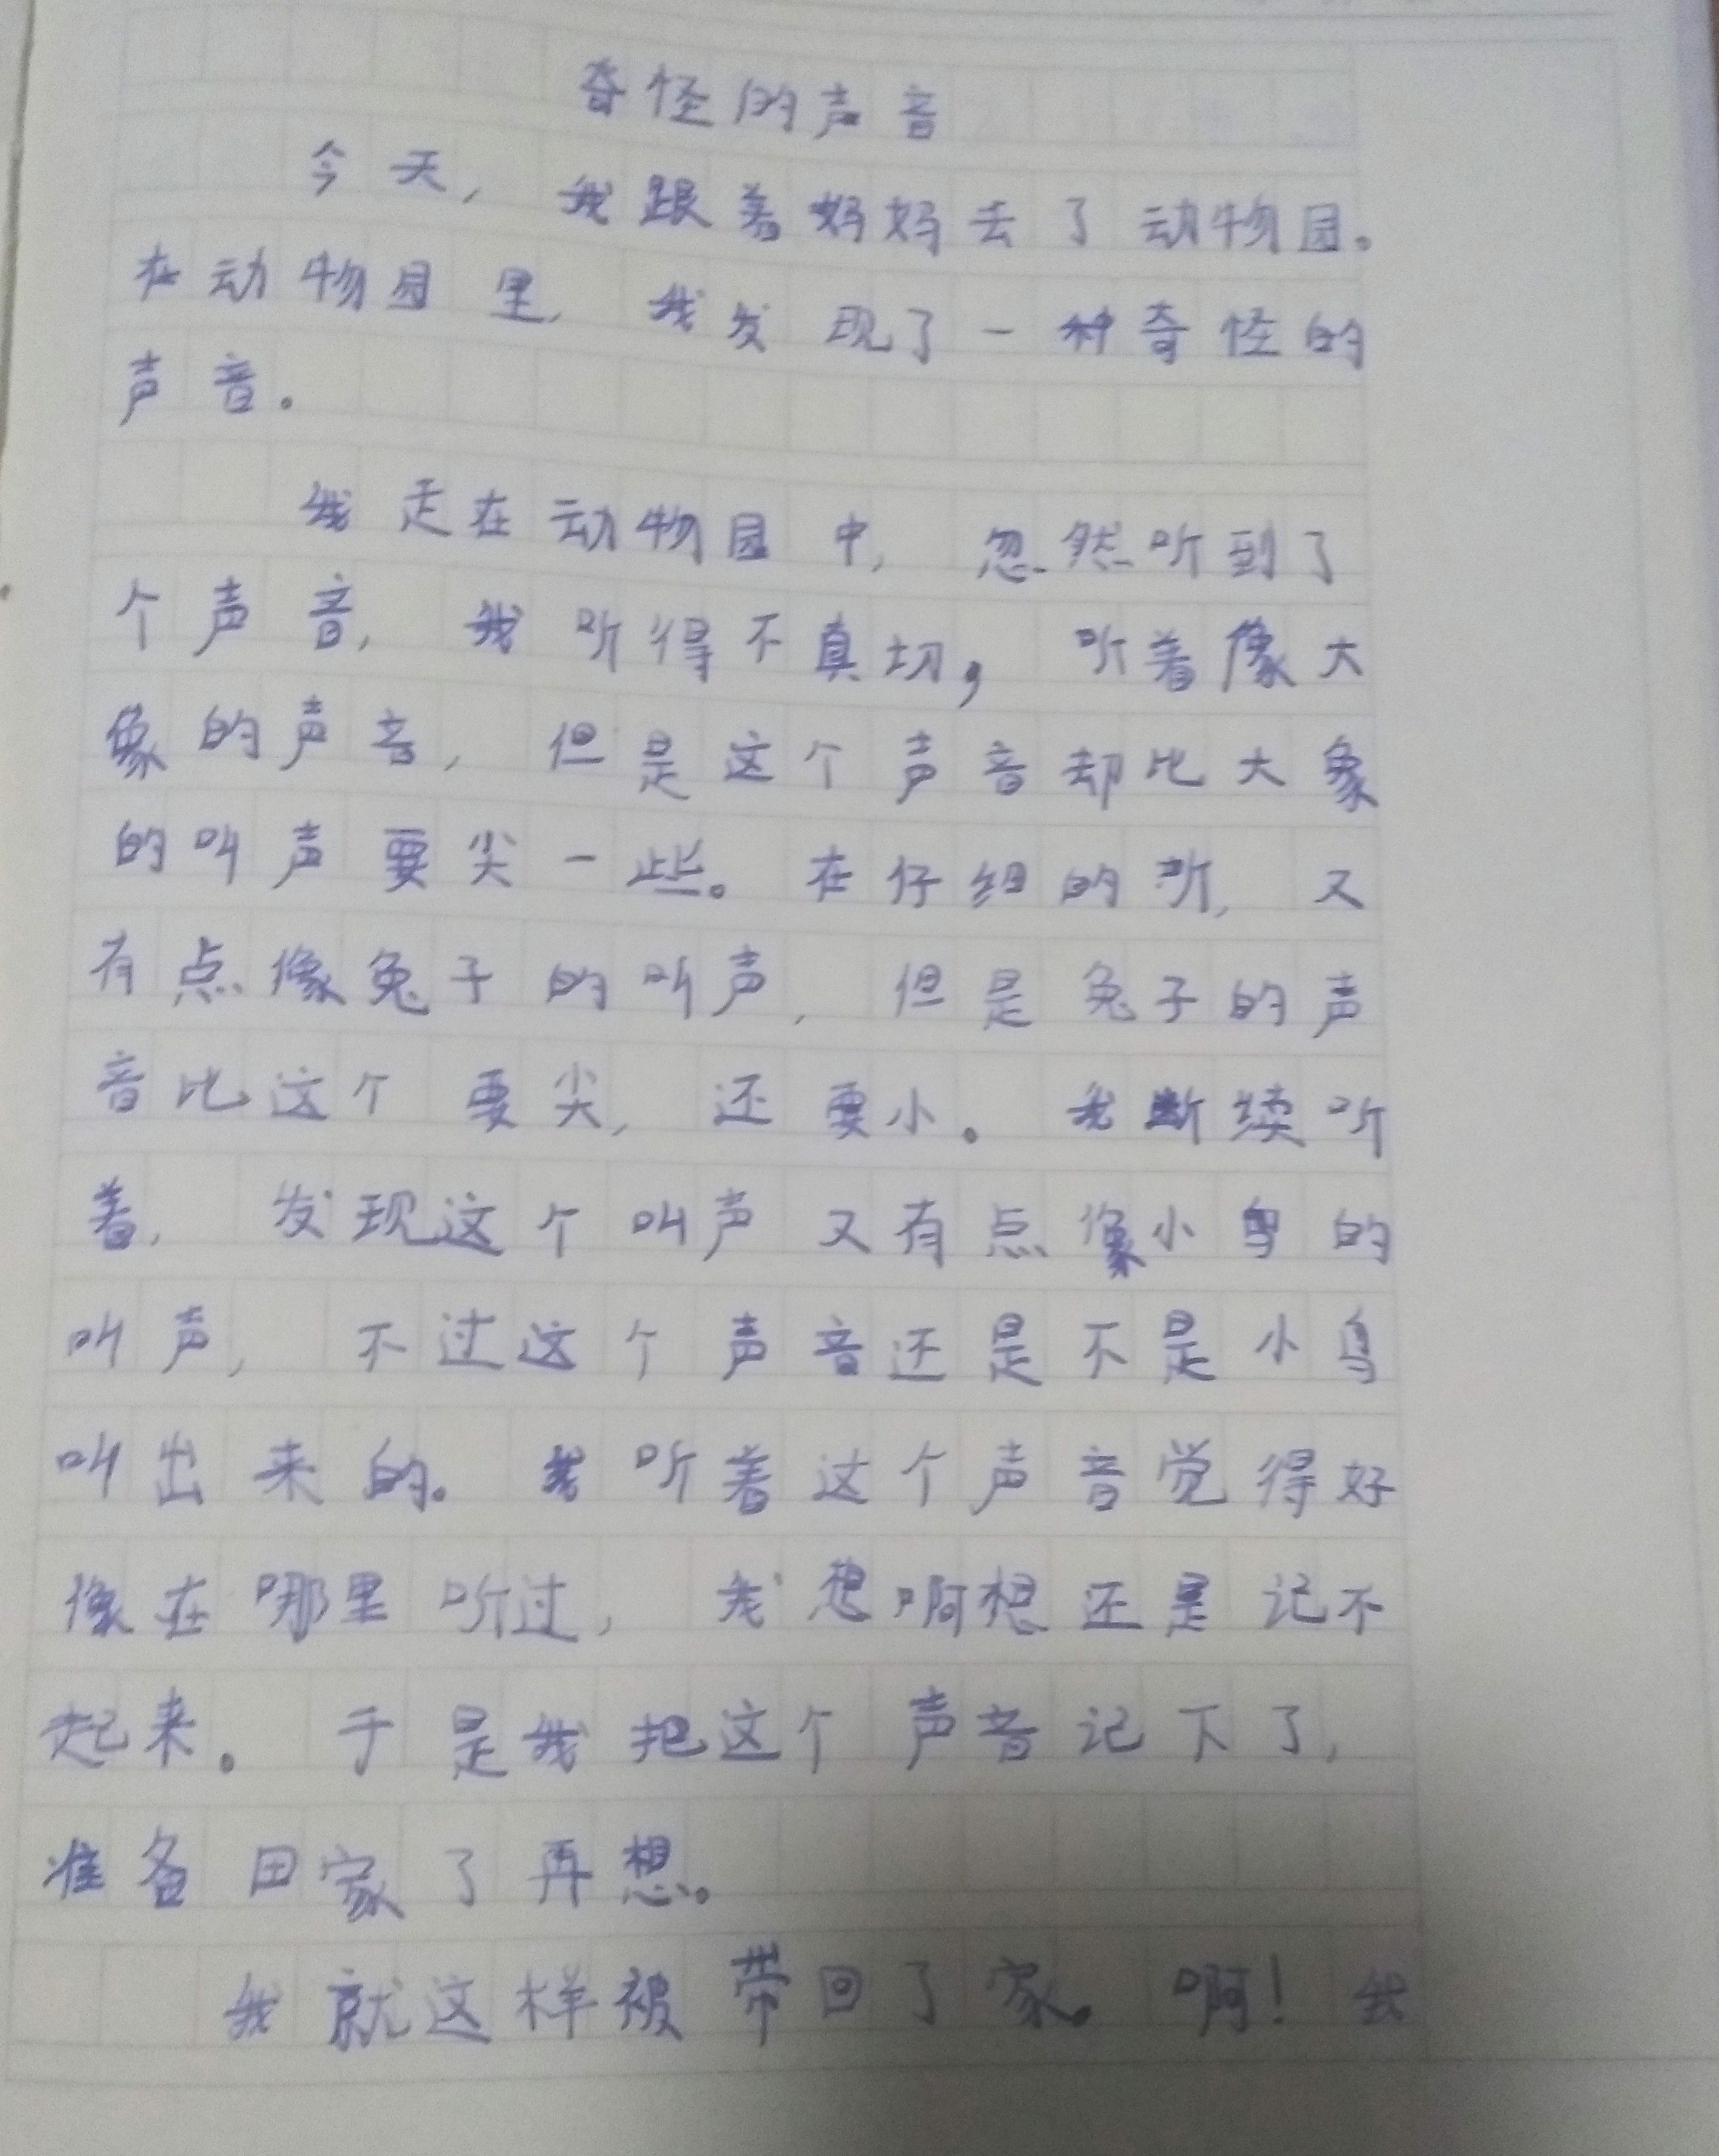 奇怪的声音
今天，我跟着妈妈去了动物园。
在动物园里，我发现了一种奇怪的
声音。
我走在动物园中，忽然听到了
个声音，我听得不真切，听着像大
象的声音，但是这个声音却比大象
的叫声要尖一些。在仔细的听，又
有点像兔子的叫声，但是兔子的声
音比这个要尖，还要小。我断续听
着，发现这个叫声又有点像小鸟的
叫声，不过这个声音还是不是小鸟
叫出来的。我听着这个声音觉得好
像在哪里听过，我想啊想还是记不
起来。于是我把这个声音记下了，
准备回家了再想。
我就这样被带回了家。啊！我